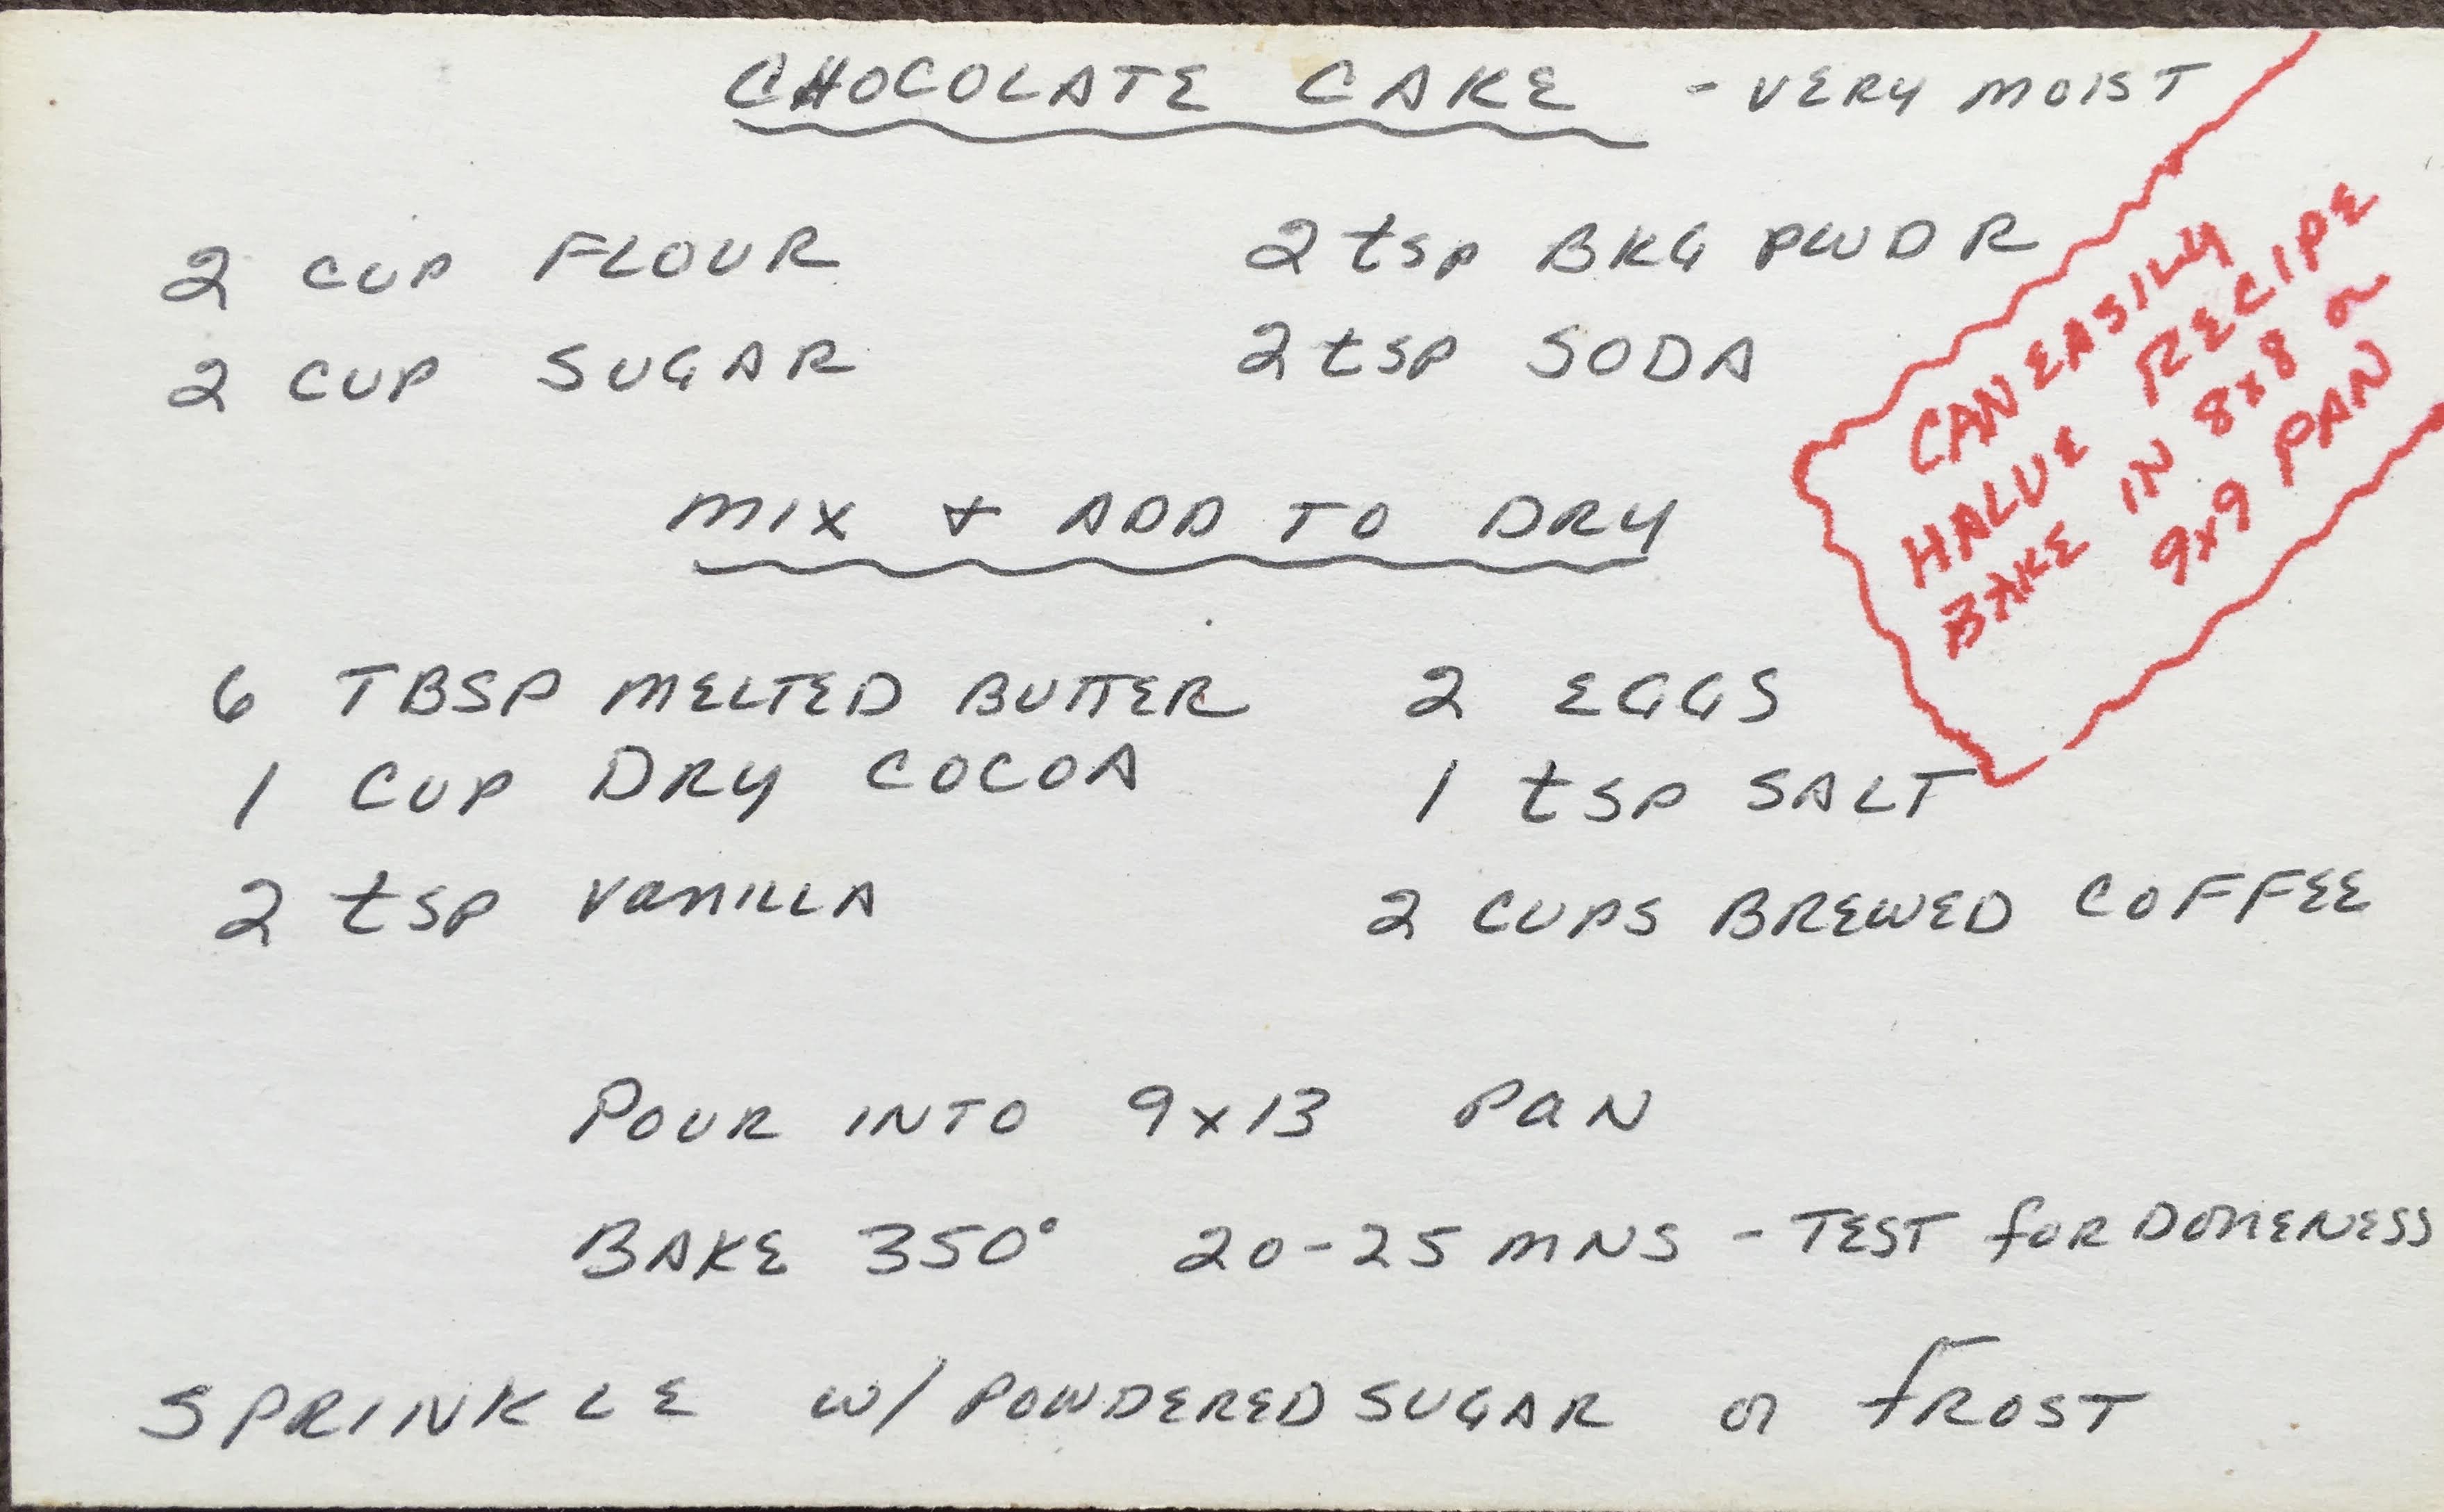 CHOCOLATE CAKE - VERY MOIST
2 CUP FLOUR 2 tsp BKG PWDR
2 CUP SUGAR 2 tsp SODA
CAN EASILY
HALVE RECIPE
BAKE IN 8x8 or
9x9 PAN
MIX + ADD TO DRY
6 TBSP MELTED BUTTER 2 EGGS
1 CUP DRY COCOA 1 tsp SALT
2 tsp VANILLA 2 CUPS BREWED COFFEE
POUR INTO 9x13 PAN
BAKE 350° 20-25 MNS - TEST for DONENESS
SPRINKLE W/ POWDERED SUGAR or fROST